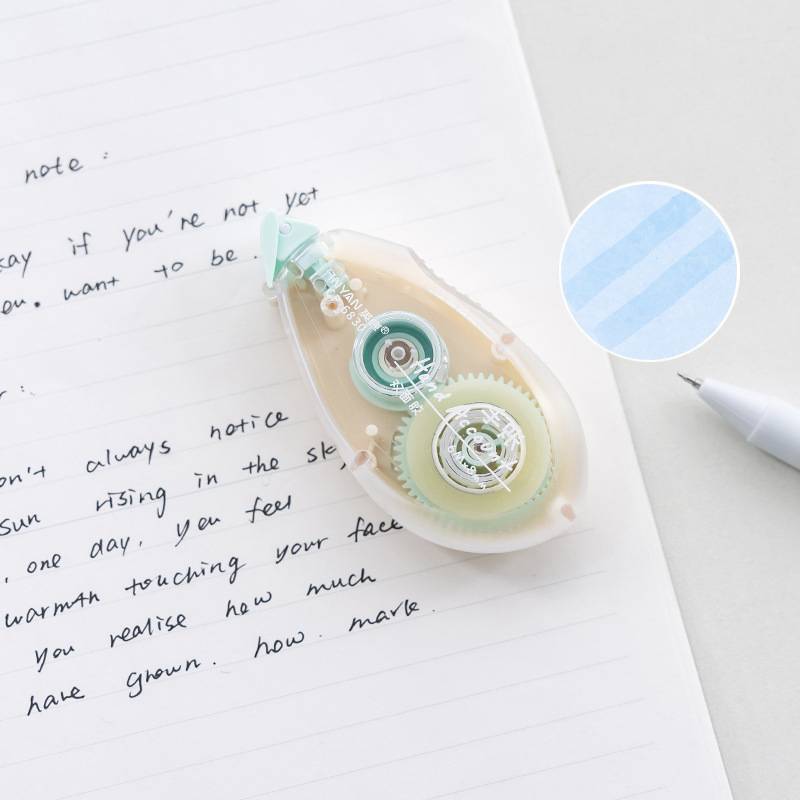 note :
kay if you're not yet
ou. want to be.
r:
on't always notice
sun rising in the sky
, one day, you feel
warmth touching your face
you realise how much
have grown. how. mark.
YAN
6830
Hand